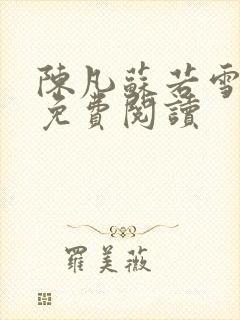 陳凡蘇若雪
免費閱讀
羅美薇